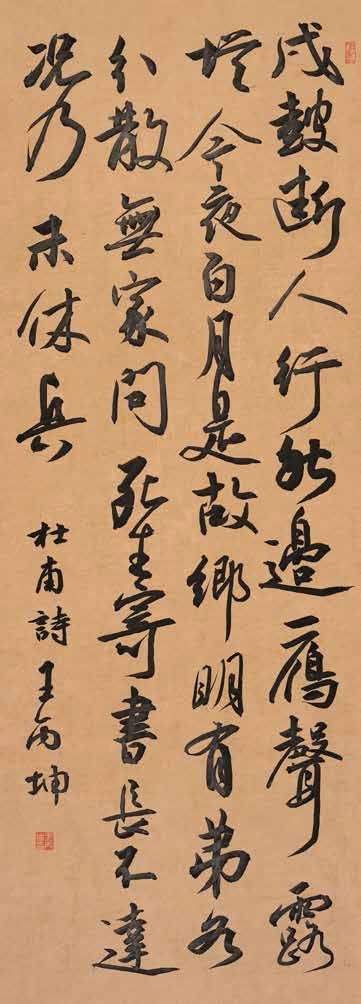 戍鼓斷人行秋邊一鴈聲露
從今夜白月是故鄉明有弟各
分散無家問死生寄書長不達
況乃未休兵 杜甫詩 王丙坤